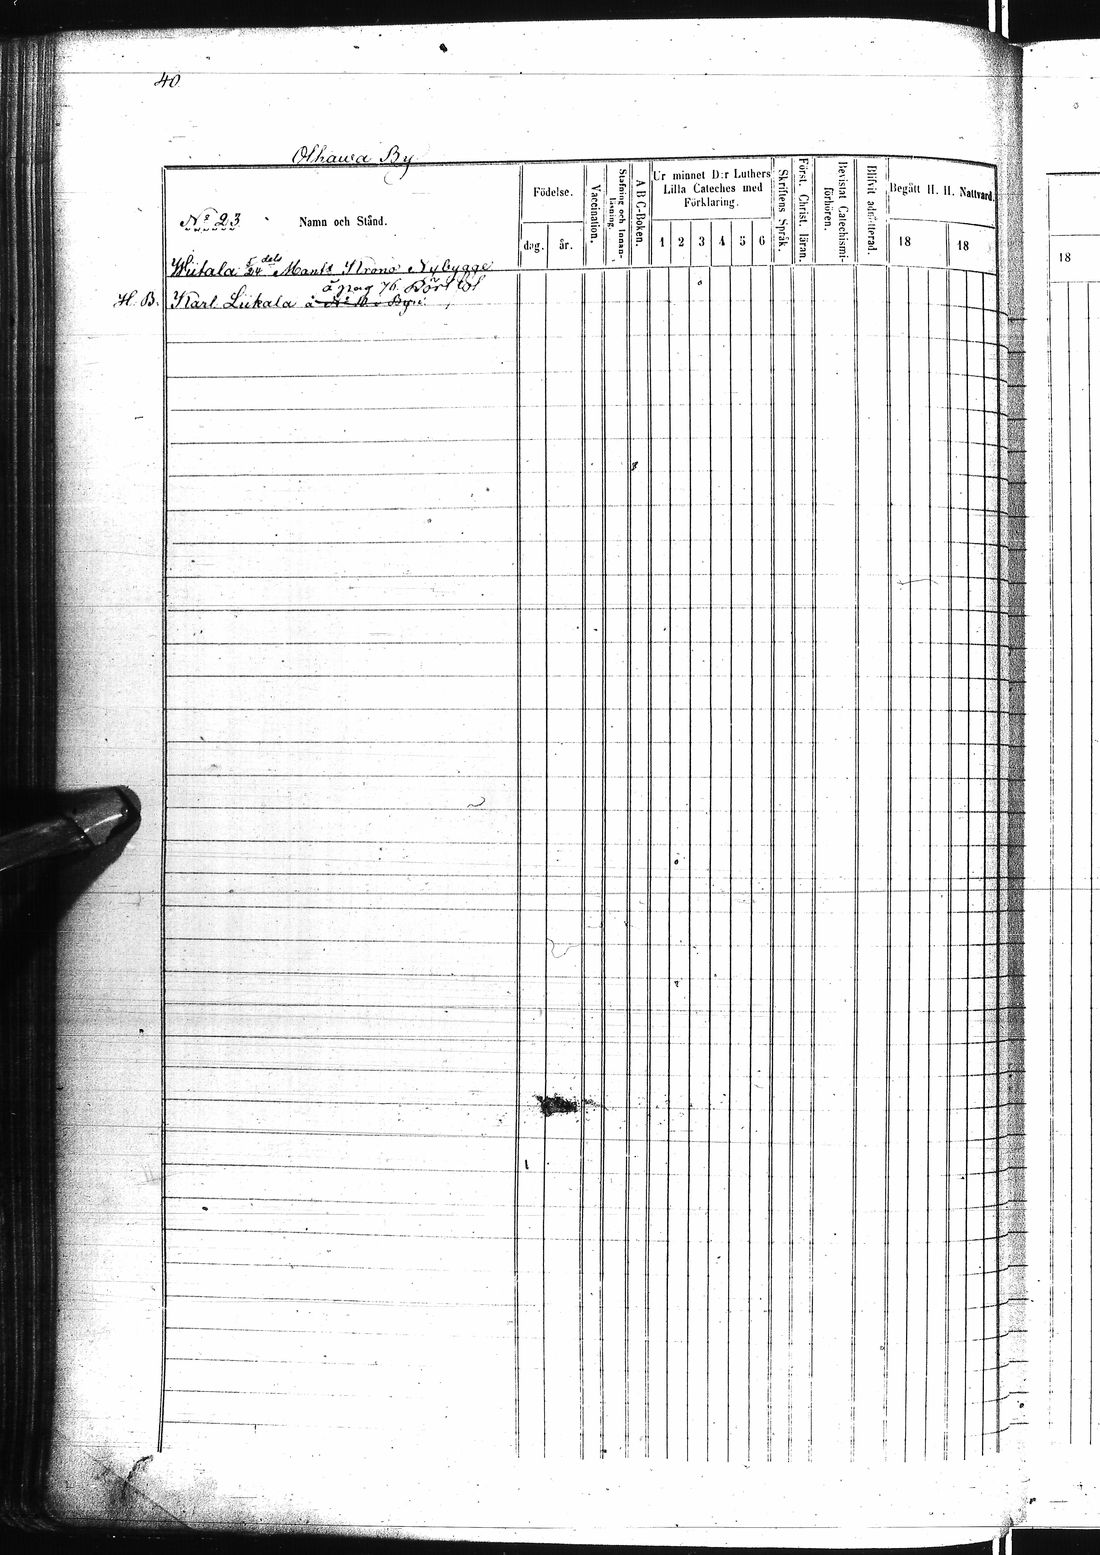 40
Olhawa By
Nº 23
Namn och Stånd.
Födelse.
dag.
år.
Vaccination.
Stafning och Innan-
läsning.
A B C-Boken.
Ur minnet D:r Luthers
Lilla Cateches med
Förklaring.
1 2 3 4 5 6
Skriftens Språk.
Först. Christ. läran.
Bevistat Catechismi-
förhören.
Blifvit admitterad.
Begått H. H. Nattvard.
18
18
18
Wiitala 5/24 dels Mantls Krono Nybygge
å pag 76.
H. B. Karl Liikala å Byn